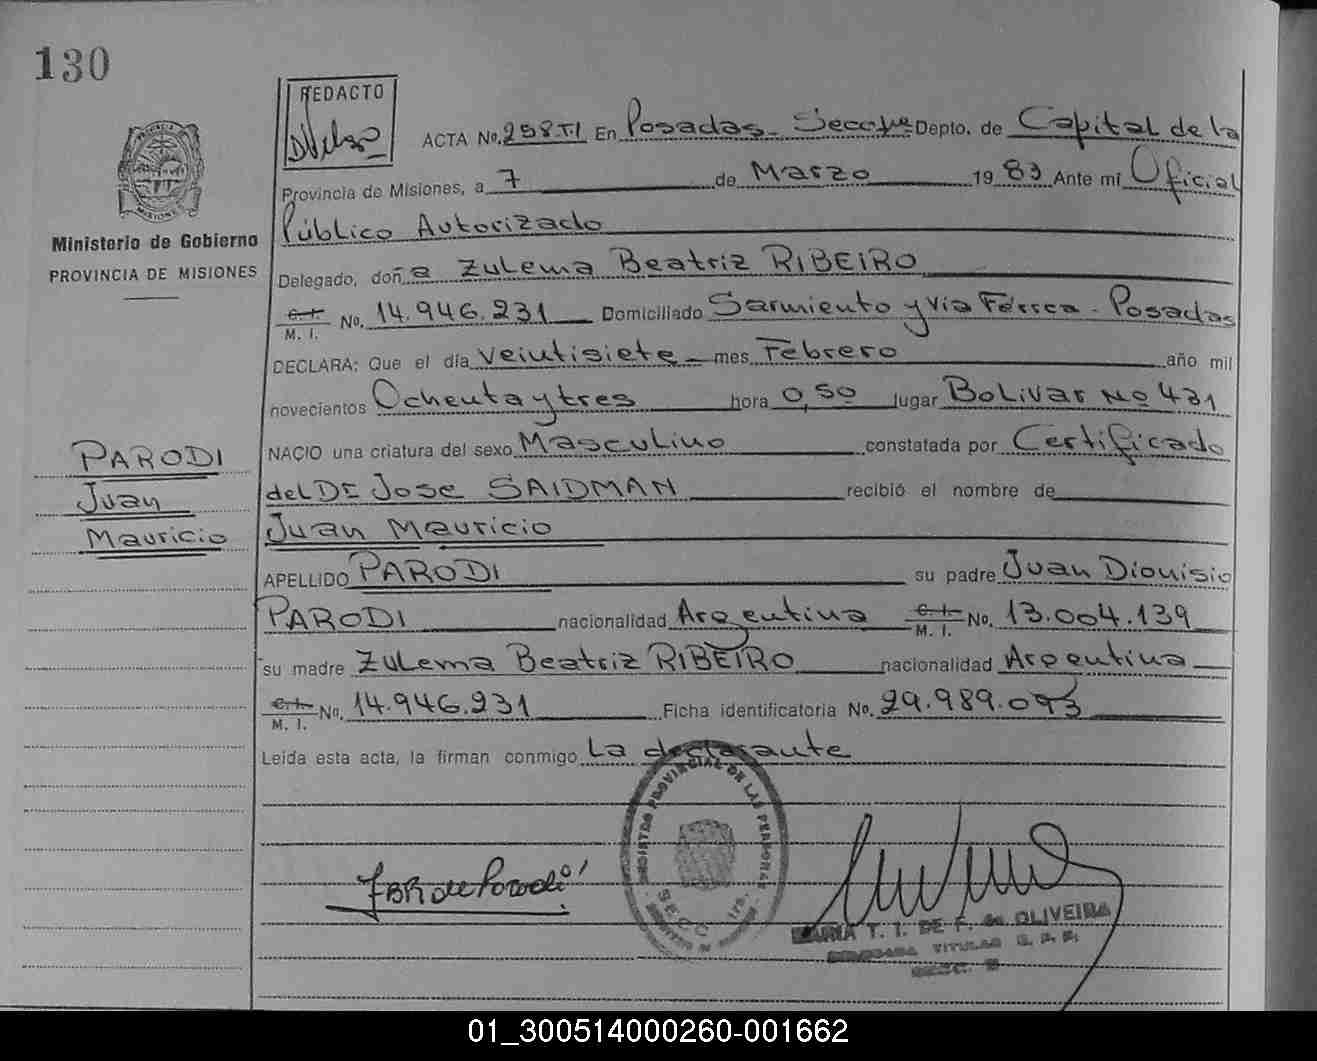 130
REDACTO
ACTA No. 258 T.I En Posadas - Secc 1ra Depto. de Capital de la
Provincia de Misiones, a 7 de Marzo 1983 Ante mí Oficial
Público Autorizado
Ministerio de Gobierno
PROVINCIA DE MISIONES
Delegado, doña Zulema Beatriz RIBEIRO
C.I.
M. I. No. 14.946.231 Domiciliado Sarmiento y Vía Férrea - Posadas
DECLARA: Que el día veintisiete mes Febrero año mil
novecientos Ochenta y tres hora 0,50 lugar Bolivar No 431
NACIO una criatura del sexo Masculino constatada por Certificado
del Dr Jose SAIDMAN recibió el nombre de
Juan Mauricio
PARODI
Juan
Mauricio
APELLIDO PARODI su padre Juan Dionisio
PARODI nacionalidad Argentina C.I.
M. I. No. 13.004.139
su madre Zulema Beatriz RIBEIRO nacionalidad Argentina
C.I.
M. I. No. 14.946.231 Ficha identificatoria No. 29.989.093
Leída esta acta, la firman conmigo la declarante
ZBR de Parodi
REGISTRO PROVINCIAL DE LAS PERSONAS
SECC. 1ra.
MARIA T. I. DE F. de OLIVEIRA
DELEGADA TITULAR R. P. P.
01_300514000260-001662